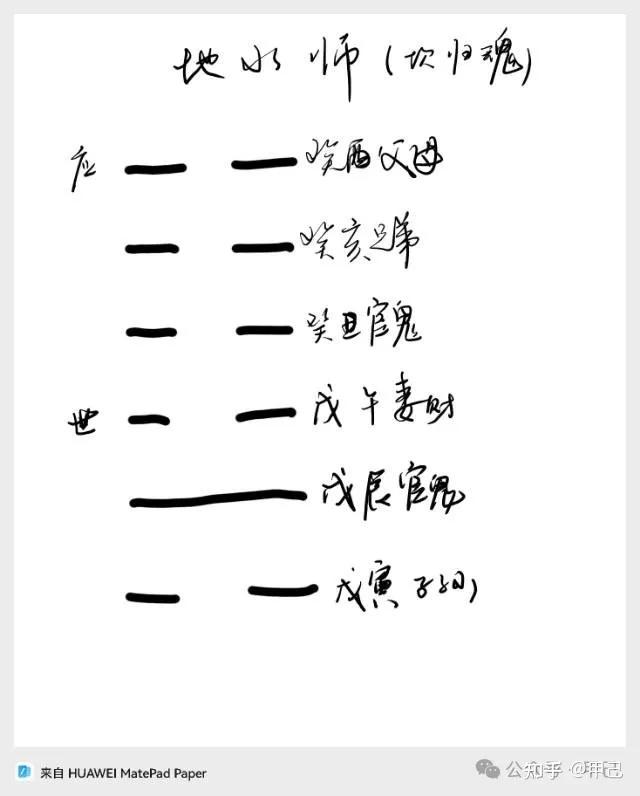 地水师(坎归魂)
应 癸酉父母
癸亥兄弟
癸丑官鬼
世 戊午妻财
戊辰官鬼
戊寅子孙
来自 HUAWEI MatePad Paper
知乎 @甲己